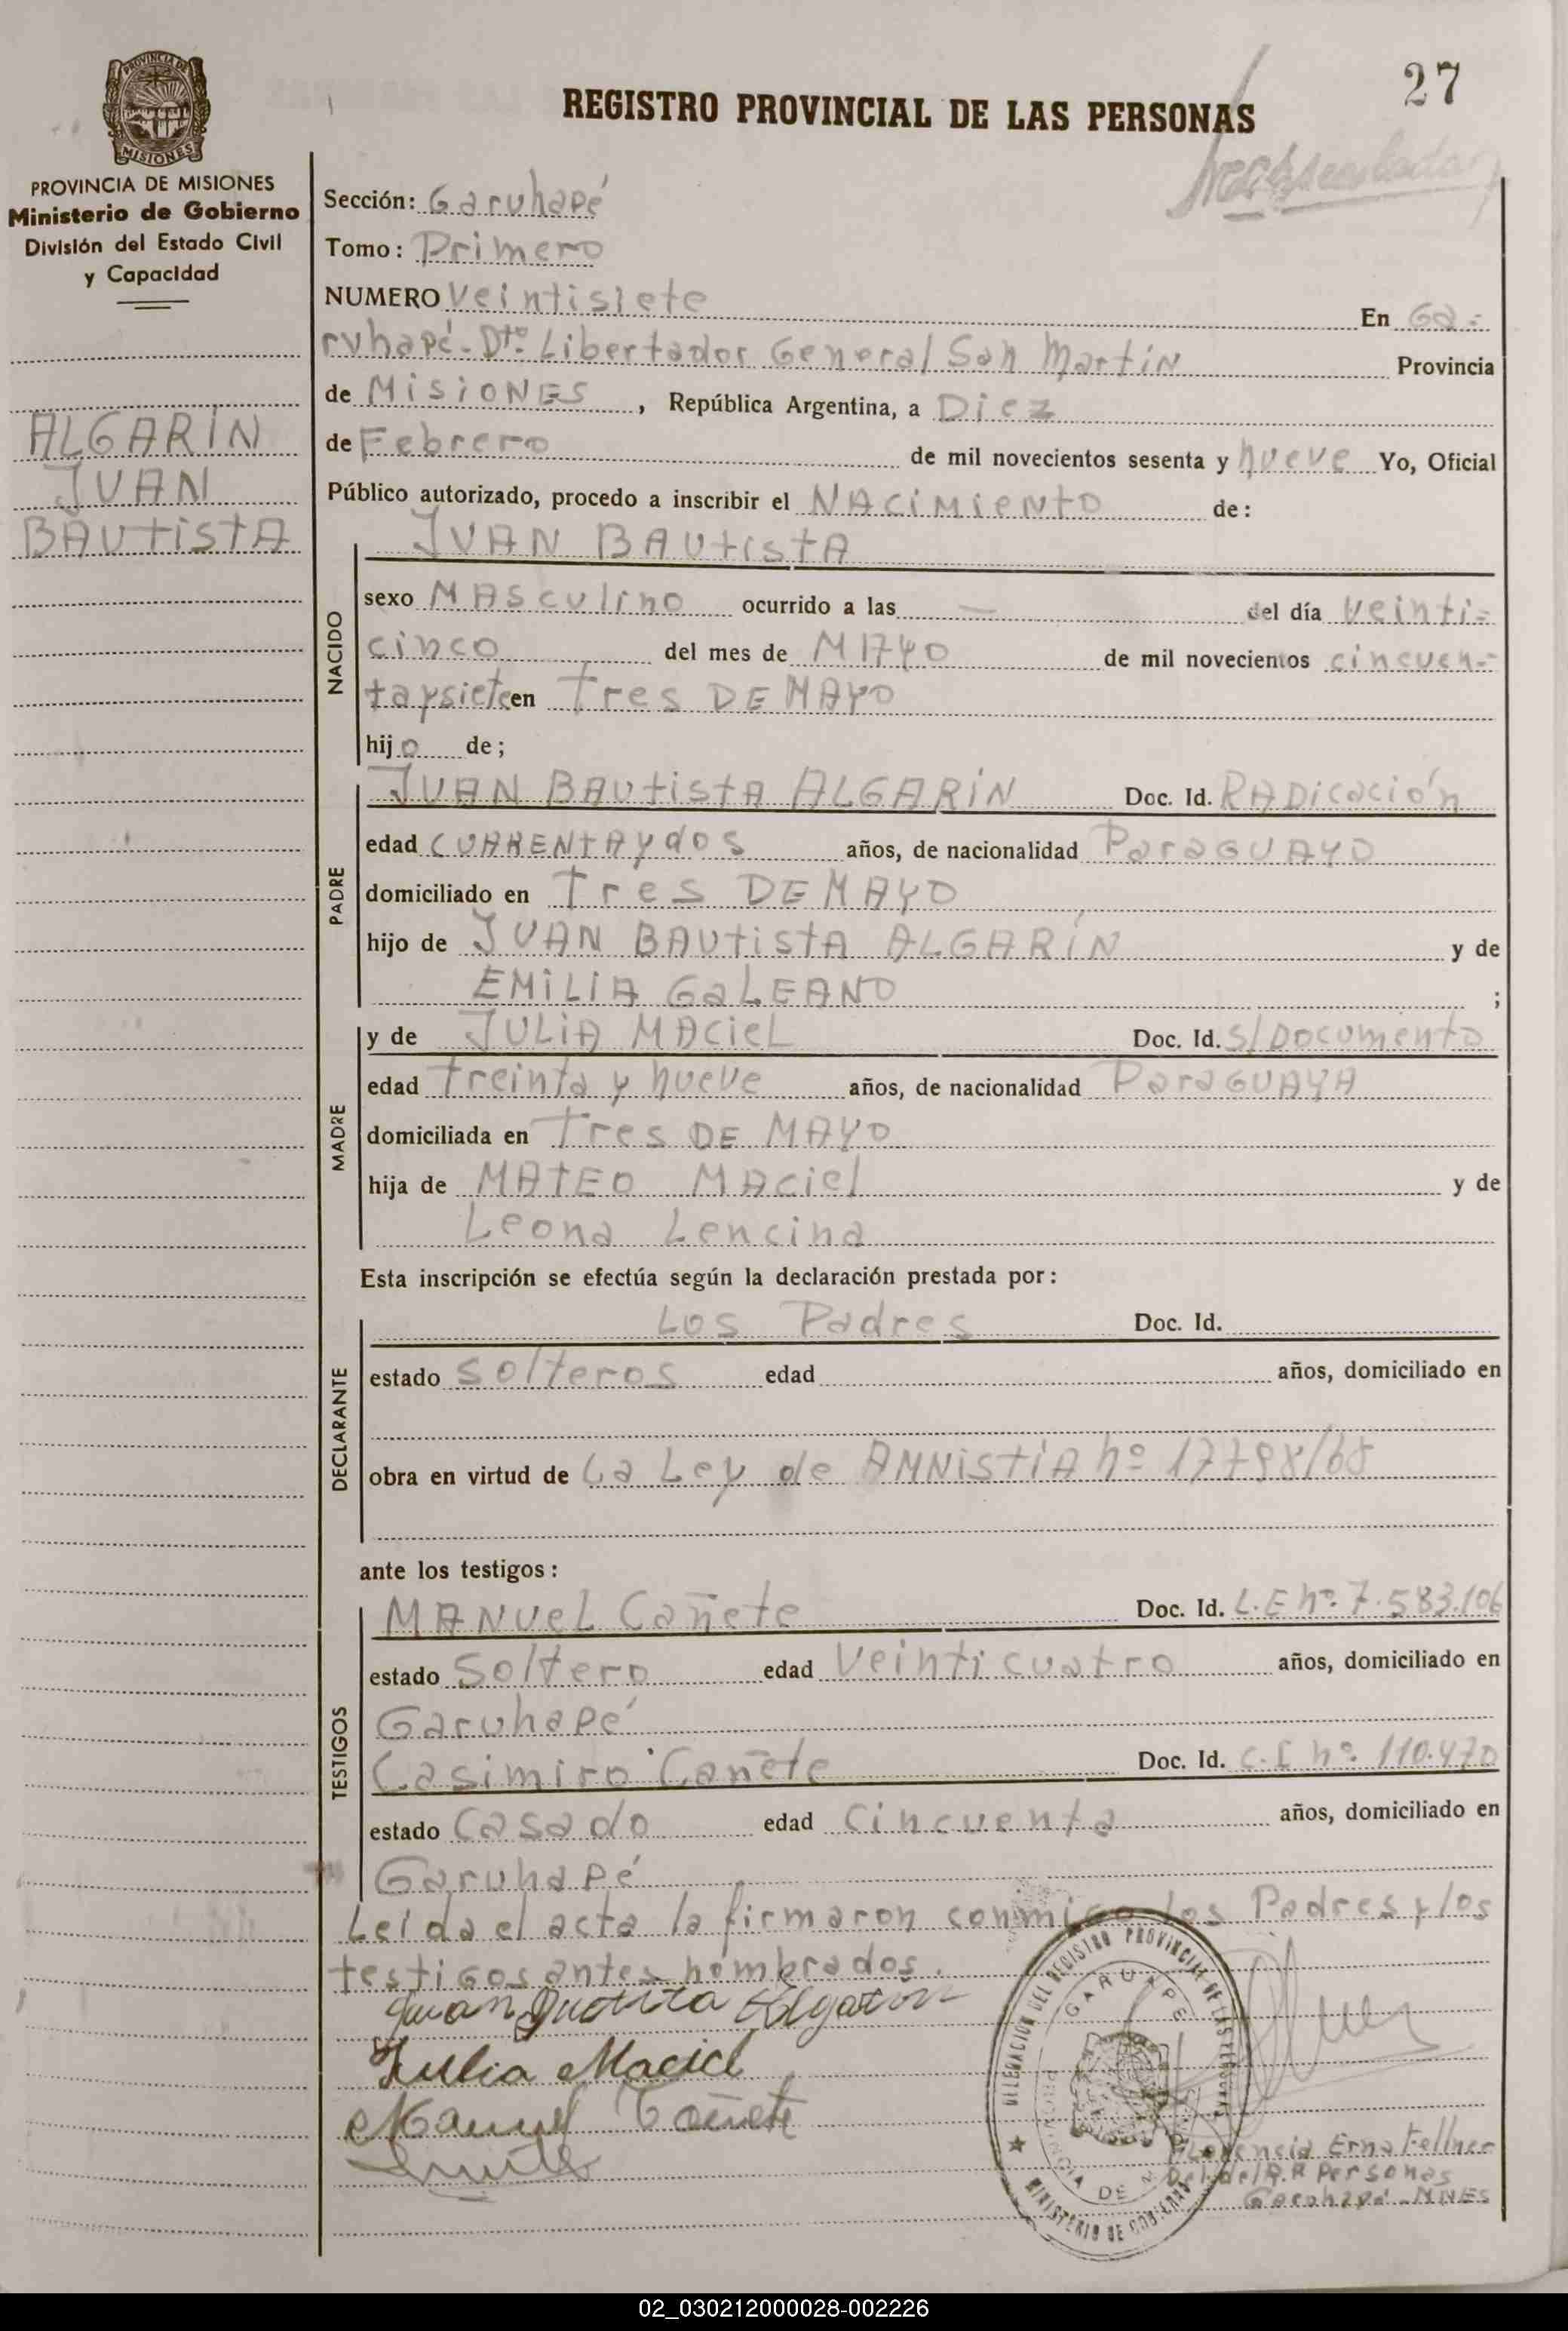 27
REGISTRO PROVINCIAL DE LAS PERSONAS
PROVINCIA DE
MISIONES
PROVINCIA DE MISIONES
Ministerio de Gobierno
División del Estado Civil
y Capacidad
ALGARÍN
JUAN
BAUtistA
Sección: Garuhapé
Tomo: Primero
NUMERO Veintisiete En Ga-
ruhapé - Dto. Libertador General San Martín Provincia
de MisiONES , República Argentina, a Diez
de Febrero de mil novecientos sesenta y nueve Yo, Oficial
Público autorizado, procedo a inscribir el NACiMieNtO de:
JUAN BAUtistA
NACIDO
sexo MAsculino ocurrido a las — del día veinti-
cinco del mes de MAYO de mil novecientos cincuen-
taysiete en Tres DE MAYO
hijo de;
PADRE
JUAN BAUtistA ALGARÍN Doc. Id. RADicación
edad CUARENtAydos años, de nacionalidad ParaGUAYO
domiciliado en Tres DE MAYO
hijo de JUAN BAUtistA ALGARÍN y de
EMiLIA GaLEANO ;
MADRE
y de JULiA MACieL Doc. Id. S/Documento
edad treinta y nueve años, de nacionalidad ParaGUAYA
domiciliada en Tres DE MAYO
hija de MATEO MACiel y de
Leona Lencina
Esta inscripción se efectúa según la declaración prestada por:
DECLARANTE
Los Padres Doc. Id.
estado solteros edad años, domiciliado en
obra en virtud de La Ley de AMNistíA nº 17798/68
ante los testigos:
TESTIGOS
MANUeL Cañete Doc. Id. L.E nº. 7.583.106
estado Soltero edad Veinticuatro años, domiciliado en
Garuhapé
Casimiro Cañete Doc. Id. C.I nº. 110.470
estado Casado edad Cincuenta años, domiciliado en
Garuhapé
Leida el acta la firmaron conmigo los Padres y los
testigos antes nombrados.
Juan Algarin
Julia Maciel
Manuel Cañete
DELEGACION DEL REGISTRO PROVINCIAL DE LAS PERSONAS
GARUHAPE
PROVINCIA DE
MINISTERIO DE GOBIERNO
Florencia Erna Fellner
Del. del R.P Personas
Garuhapé - MNES
02_030212000028-002226